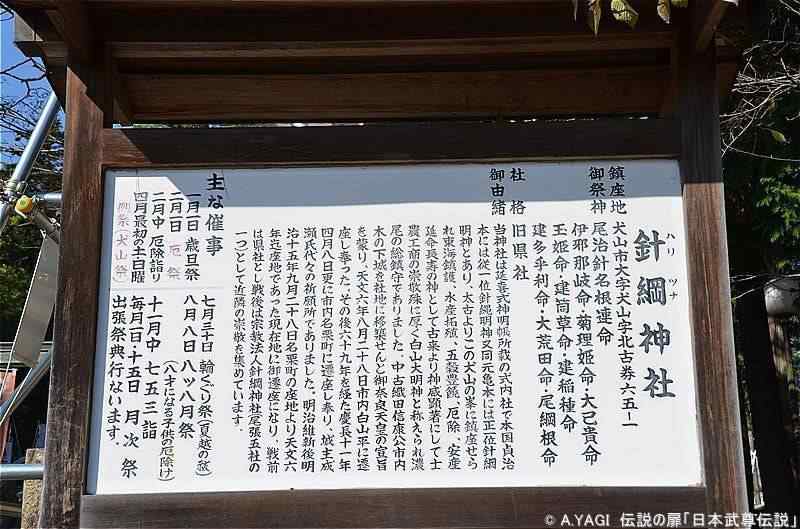 針綱神社
ハリ
ツナ
鎮座地 犬山市大字犬山字北古券六五ノ一
御祭神 尾治針名根連命
伊邪那岐命・菊理姫命・大己貴命
玉姫命・建筒草命・建稲種命
建多乎利命・大荒田命・尾綱根命
社格 旧県社
御由緒 当神社は延喜式神明帳所載の式内社で本国貞治
本には従一位針綱明神又同元亀本には正位針綱
明神とあり、太古よりこの犬山の峯に鎮座せら
れ東海鎮護、水産拓殖、五穀豊饒、厄除、安産
延命長寿の神として古来より神威顕著にして士
農工商の崇敬殊に厚く白山大明神と称えられ濃
尾の総鎮守でありました。中古織田信康公市内
木の下城を社地に移築せんと御奈良天皇の宣旨
を蒙り、天文六年八月二十八日市内白山平に遷
座し奉った。その後八十九年を経た慶長十一年
四月八日更に市内名栗町に遷座し奉り、城主成
瀬氏代々の祈願所でありました。明治維新後明
治十五年九月二十八日名栗町の座地より天文六
年迄座地であった現在地に御遷座になり、戦前
は県社とし戦後は宗教法人針綱神社尾張五社の
一つとして近隣の崇敬を集めています。
主な催事
一月一日 歳旦祭
二月一日 厄祭
二月中 厄除詣り
四月最初の土日曜
例祭（犬山祭）
七月三十日 輪くぐり祭（夏越の祓）
八月八日 八ッ八月祭
（八才になる子供の厄除け）
十一月中 七五三詣
毎月一日・十五日 月次祭
出張祭典行ないます。
© A.YAGI 伝説の扉「日本武尊伝説」